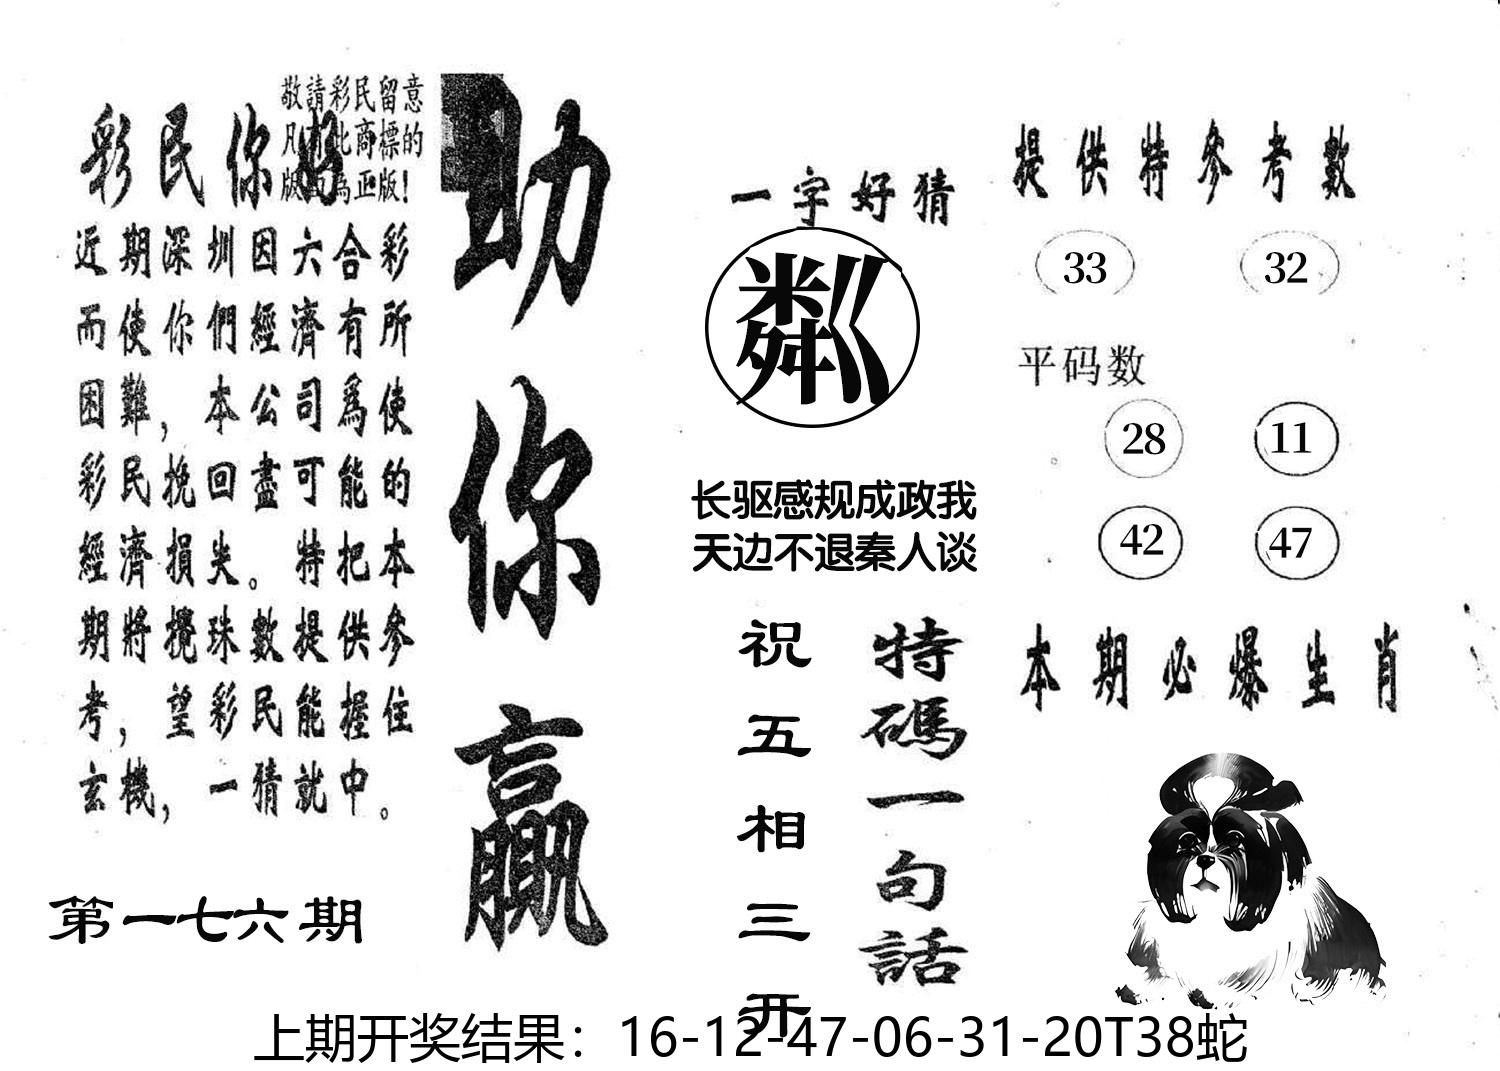 敬請彩民留意
凡有此商標的
版面為正版！
彩民你好
近期深圳因六合彩
而使你們經濟有所
困難，本公司爲使
彩民挽回盡可能的
經濟損失。特把本
期將攪珠數提供參
考，望彩民能握住
玄機，一猜就中。
第一七六期
助你赢
一字好猜
粼
长驱感规成政我
天边不退秦人谈
祝五相三开
特碼一句話
提供特參考數
33 32
平码数
28 11
42 47
本期必爆生肖
上期开奖结果：16-12-47-06-31-20T38蛇